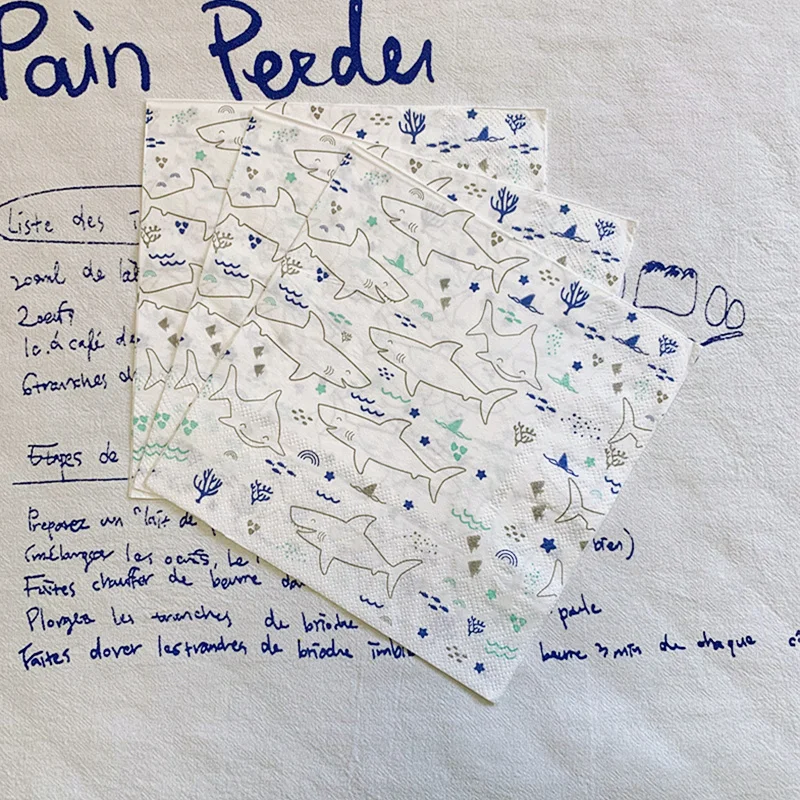 Pain Perdu
Liste des
200ml de
2 oeufs
1c.à café de
6 tranches
Etapes de
Preparez un "lait de
(mélanger les oeufs, le bien)
Faites chauffer de beurre
Plongez les tranches de brioche
Faites dorer les tranches de brioche beurre 3 min de chaque